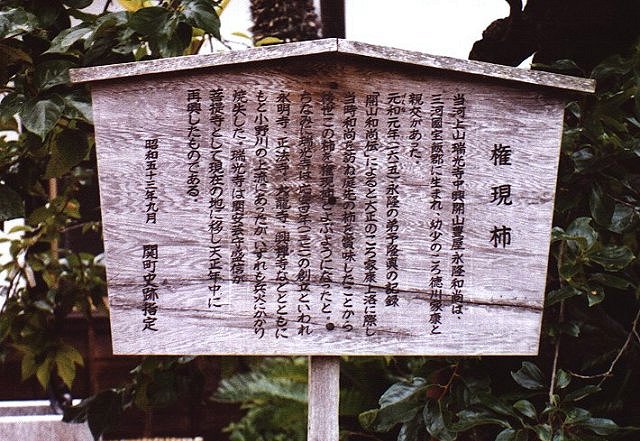 権現柿
当河上山瑞光寺中興開山豊屋永隆和尚は、
三河國宝飯郡に生まれ、幼少のころ徳川家康と
親交があった。
元和元年(一六一五)永隆の弟子盛養の記録
「開山和尚伝」によると天正のころ家康上洛に際し
当時和尚を訪ね庭生の柿を賞味したことから
後世この柿を権現柿とよぶようになったと。
ちなみに瑞光寺は
の創立といわれ
永明寺、正法寺、大龍寺、興禅寺などとともに
もと小野川の上流にあったが、いずれも兵火にかかり
焼失した。瑞光寺は関安芸守盛信が
菩提寺として現在の地に移し天正年中に
再興したものである。
昭和五十三年九月
関町史跡指定